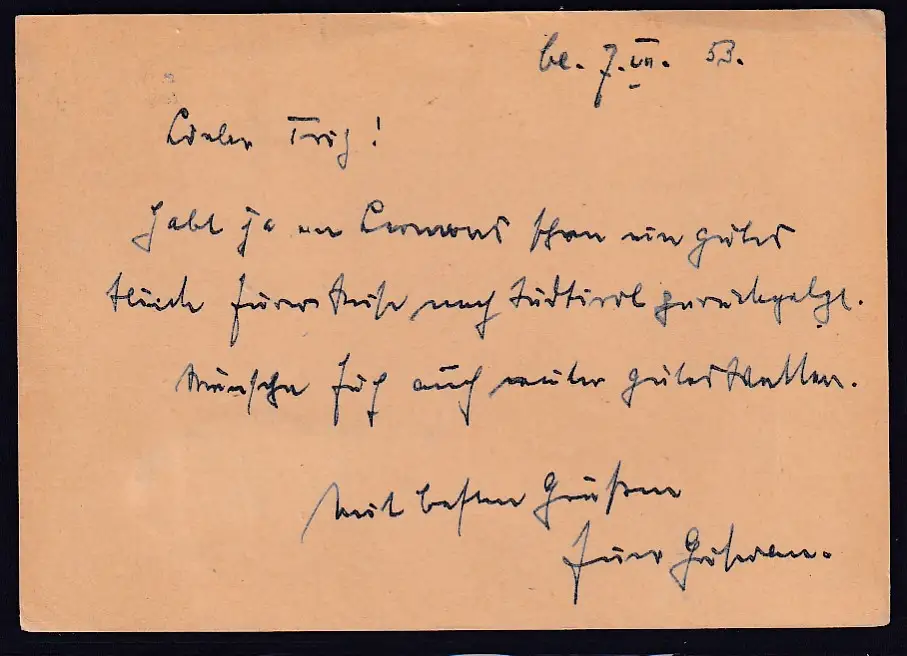 be. 7.VII. 53.
Lieber Fritz!
Habt ja in schon ein gutes
Stück Eurer Reise nach Südtirol zurückgelegt.
Wünsche Euch auch weiter gutes Wetter.
Mit besten Grüßen
Euer